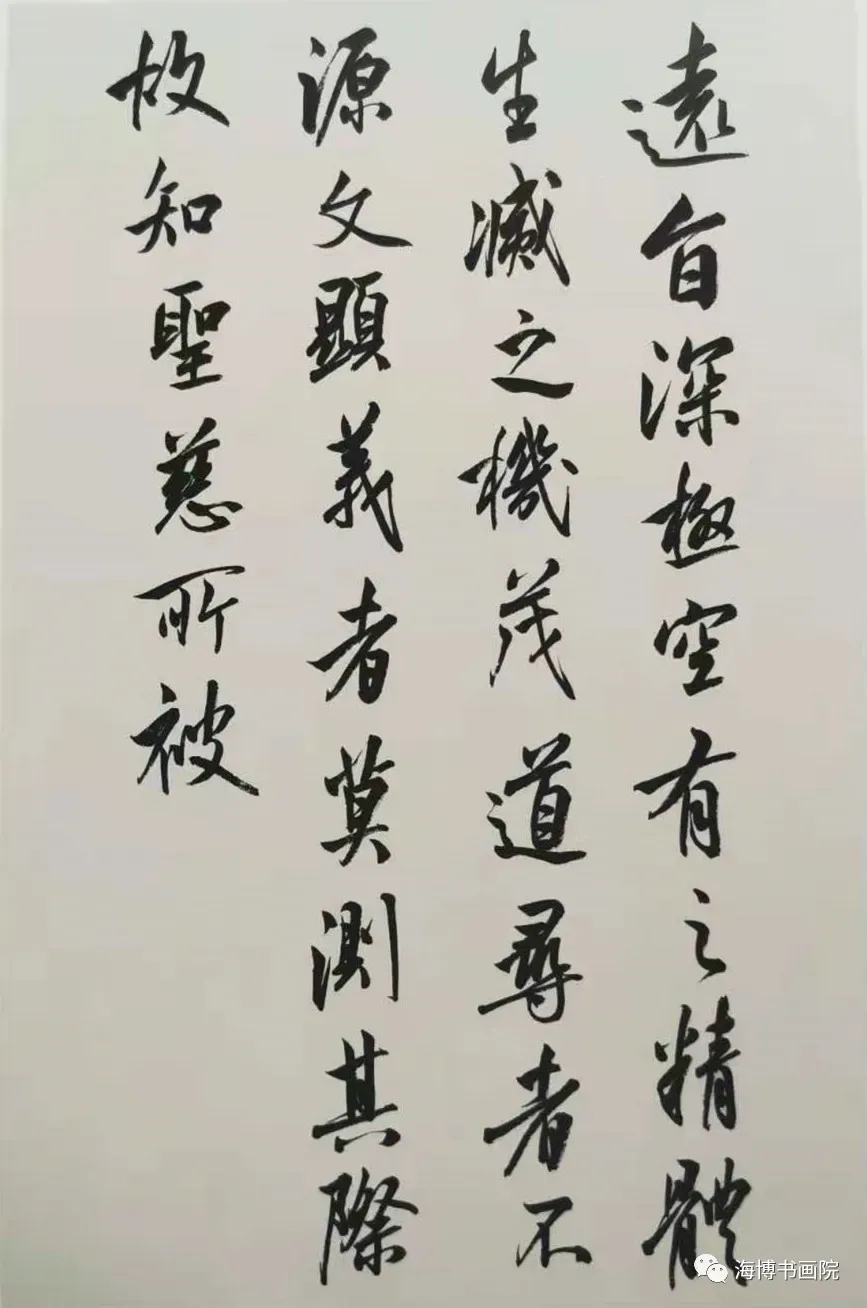 遠旨深極空有之精體
生滅之機茂道尋者不
源文顯義者莫測其際
故知聖慈所被
海博书画院